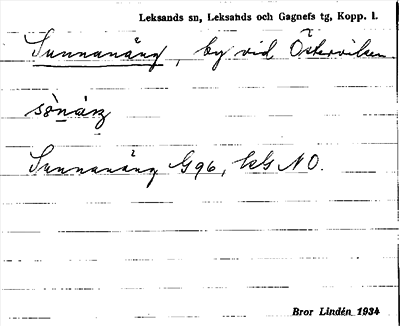 Leksands sn, Leksands och Gagnefs tg, Kopp. l.
Sunnanäng, by vid Österviken
Sunnanäng G96, kG NO.
Bror Lindén 1934